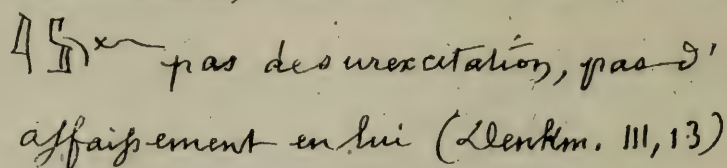 pas de surexcitation, pas d'
affaissement en lui (Denkm. III, 13)